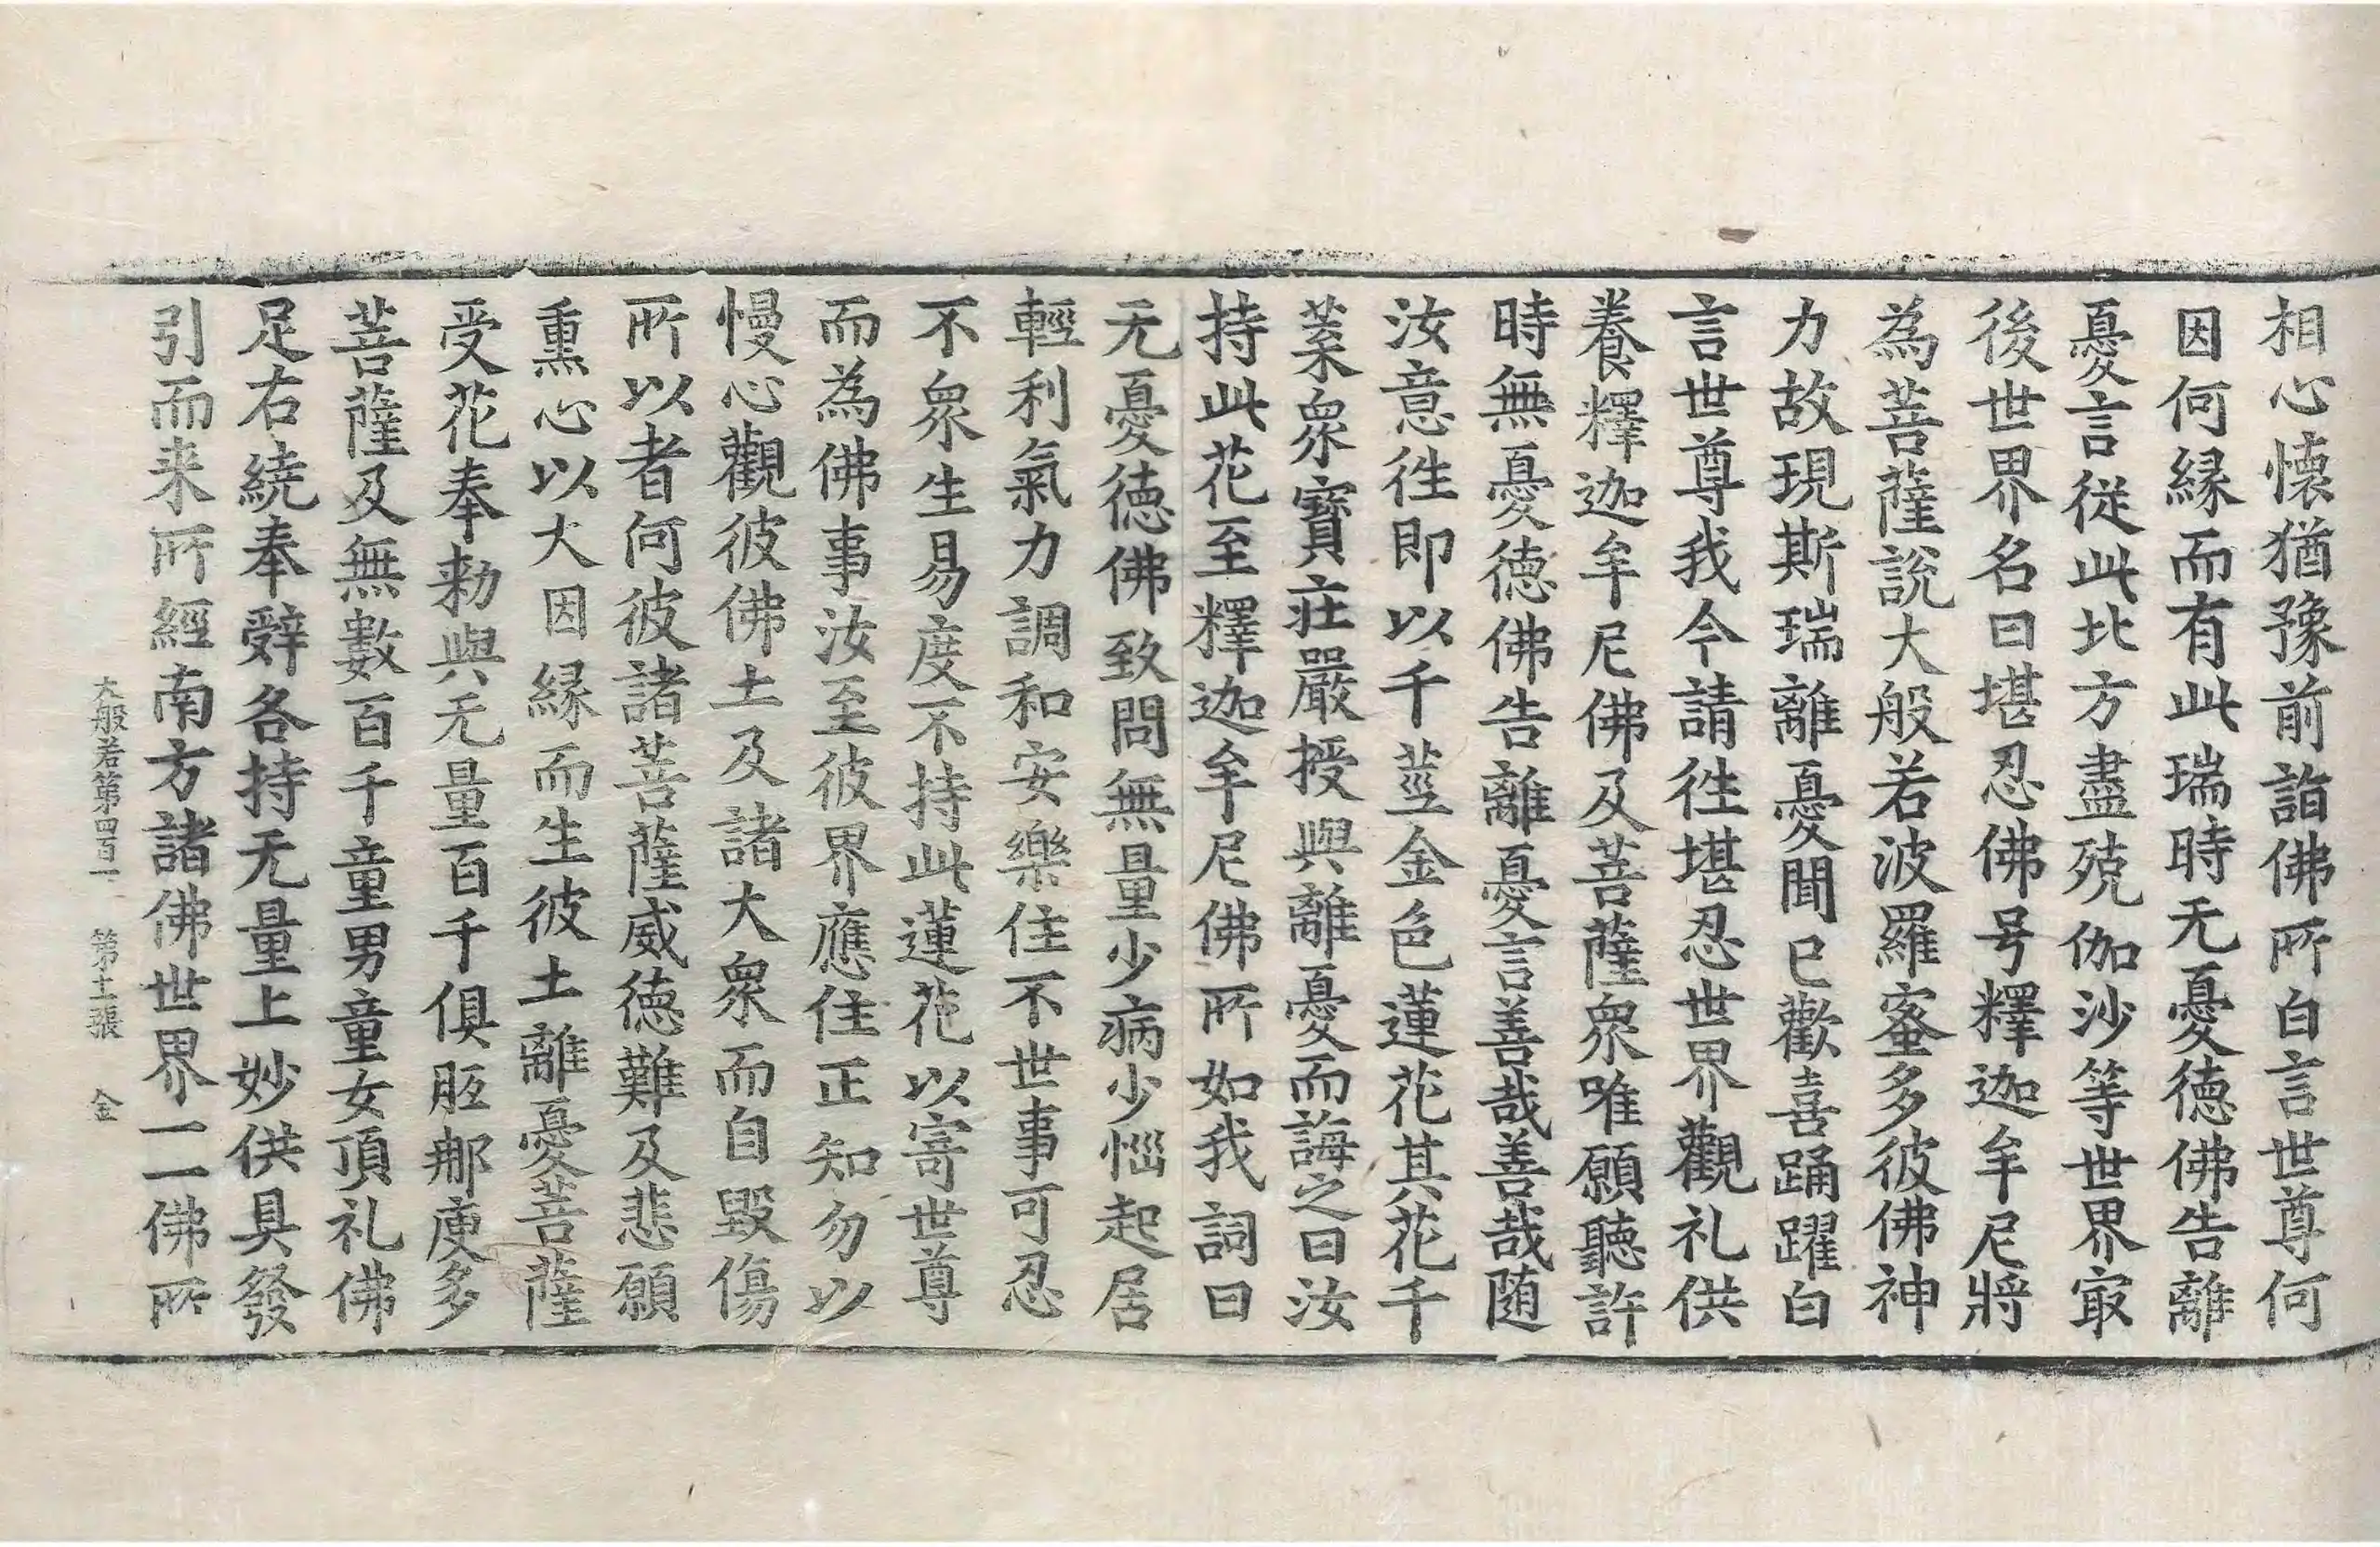 相心懷猶豫前詣佛所白言世尊何
因何縁而有此瑞時无憂德佛告離
憂言從此北方盡殑伽沙等世界㝡
後世界名曰堪忍佛号釋迦牟尼將
為菩薩說大般若波羅蜜多彼佛神
力故現斯瑞離憂聞已歡喜踊躍白
言世尊我今請徃堪忍世界觀礼供
養釋迦牟尼佛及菩薩眾唯願聽許
時無憂德佛告離憂言善哉善哉随
汝意徃即以千莖金色蓮花其花千
葉眾寶莊嚴授與離憂而誨之曰汝
持此花至釋迦牟尼佛所如我詞曰
无憂德佛致問無量少病少惱起居
輕利氣力調和安樂住不世事可忍
不眾生易度不持此蓮花以寄世尊
而為佛事汝至彼界應住正知勿以
慢心觀彼佛土及諸大眾而自毀傷
所以者何彼諸菩薩威德難及悲願
熏心以大因縁而生彼土離憂菩薩
受花奉勑與无量百千俱胝那庾多
菩薩及無數百千童男童女頂礼佛
足右繞奉辭各持无量上妙供具發
引而来所經南方諸佛世界一一佛所
大般若第四百一　第十一張　金